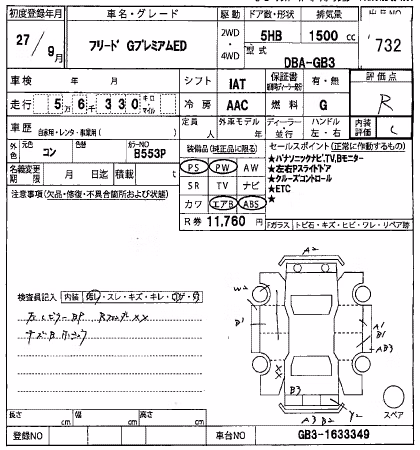 初度登録年月 車名・グレード 駆動 ドア数・形状 排気量
27/9月 フリード GプレミアムED 2WD・4WD 5HB 1500 cc 732
型式 DBA-GB3
車検 年 月 シフト IAT 保証書 有・無 評価点
走行 5万6千330 キロ・マイル 冷房 AAC 燃料 G R
車歴 自家用・レンタ・事業用( ) 定員 人 外車モデル 年 ディーラー・並行 ハンドル 左・右 内装評価 C
外色 コン 元色 色替 カラーNO B553P
装備品(純正品に限る) セールスポイント(正常に作動するもの)
名義変更期限 月 日迄 積載 t
PS PW AW
★パナソニックナビ,TV,Bモニター
★左右Pスライドドア
注意事項(欠品・修復・不具合箇所および状態)
SR TV ナビ
★クルーズコントロール
★ETC
カワ エアB ABS
★
R券 11,760 円
Fガラス トビ石・キズ・ヒビ・ワレ・リペア跡
A2
検査員記入 内装
W2
B1
A1
B1
AB3
XX
B3
Y2
A3 B2
スペア
長さ cm 幅 cm 高さ cm
登録NO 車台NO GB3-1633349